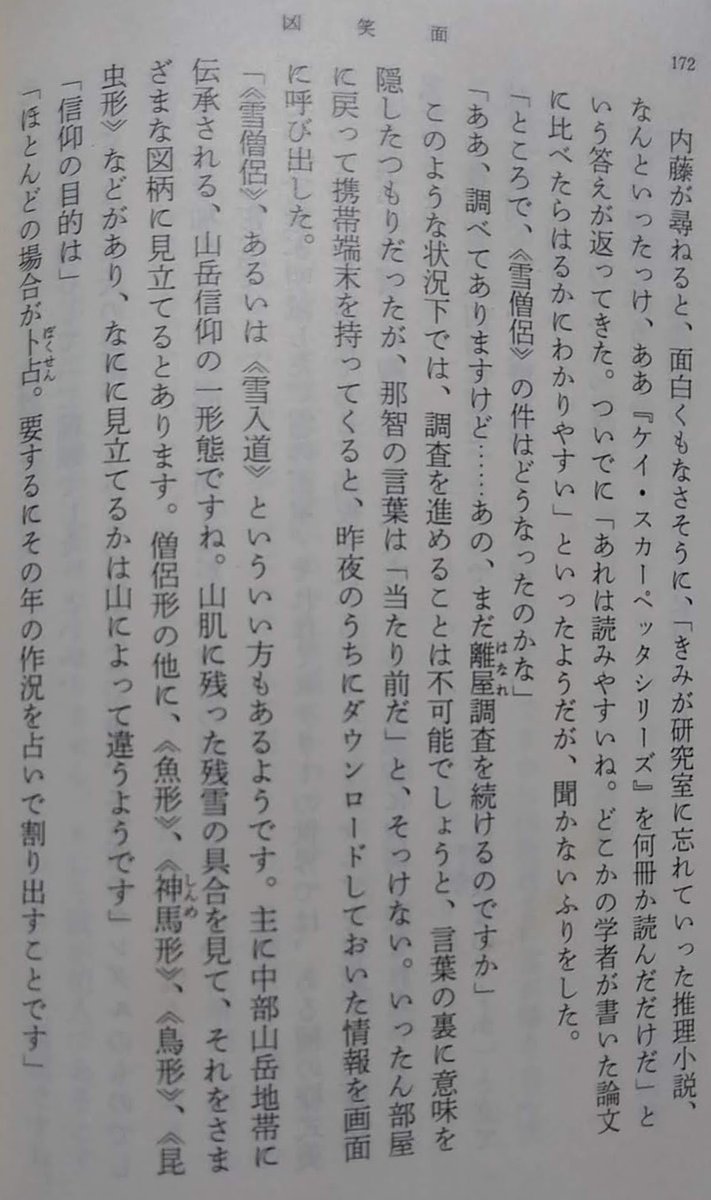 凶笑面
172
内藤が尋ねると、面白くもなさそうに、「きみが研究室に忘れていった推理小説、
なんといったっけ、ああ『ケイ・スカーペッタシリーズ』を何冊か読んだだけだ」と
いう答えが返ってきた。ついでに「あれは読みやすいね。どこかの学者が書いた論文
に比べたらはるかにわかりやすい」といったようだが、聞かないふりをした。
「ところで、《雪僧侶》の件はどうなったのかな」
「ああ、調べてありますけど……あの、まだ離屋調査を続けるのですか」
はなれ
このような状況下では、調査を進めることは不可能でしょうと、言葉の裏に意味を
隠したつもりだったが、那智の言葉は「当たり前だ」と、そっけない。いったん部屋
に戻って携帯端末を持ってくると、昨夜のうちにダウンロードしておいた情報を画面
に呼び出した。
「《雪僧侶》、あるいは《雪入道》といういい方もあるようです。主に中部山岳地帯に
伝承される、山岳信仰の一形態ですね。山肌に残った残雪の具合を見て、それをさま
ざまな図柄に見立てるとあります。僧侶形の他に、《魚形》、《神馬形》、《鳥形》、《昆
しんめ
虫形》などがあり、なにに見立てるかは山によって違うようです」
「信仰の目的は」
「ほとんどの場合が卜占。要するにその年の作況を占いで割り出すことです」
ぼくせん